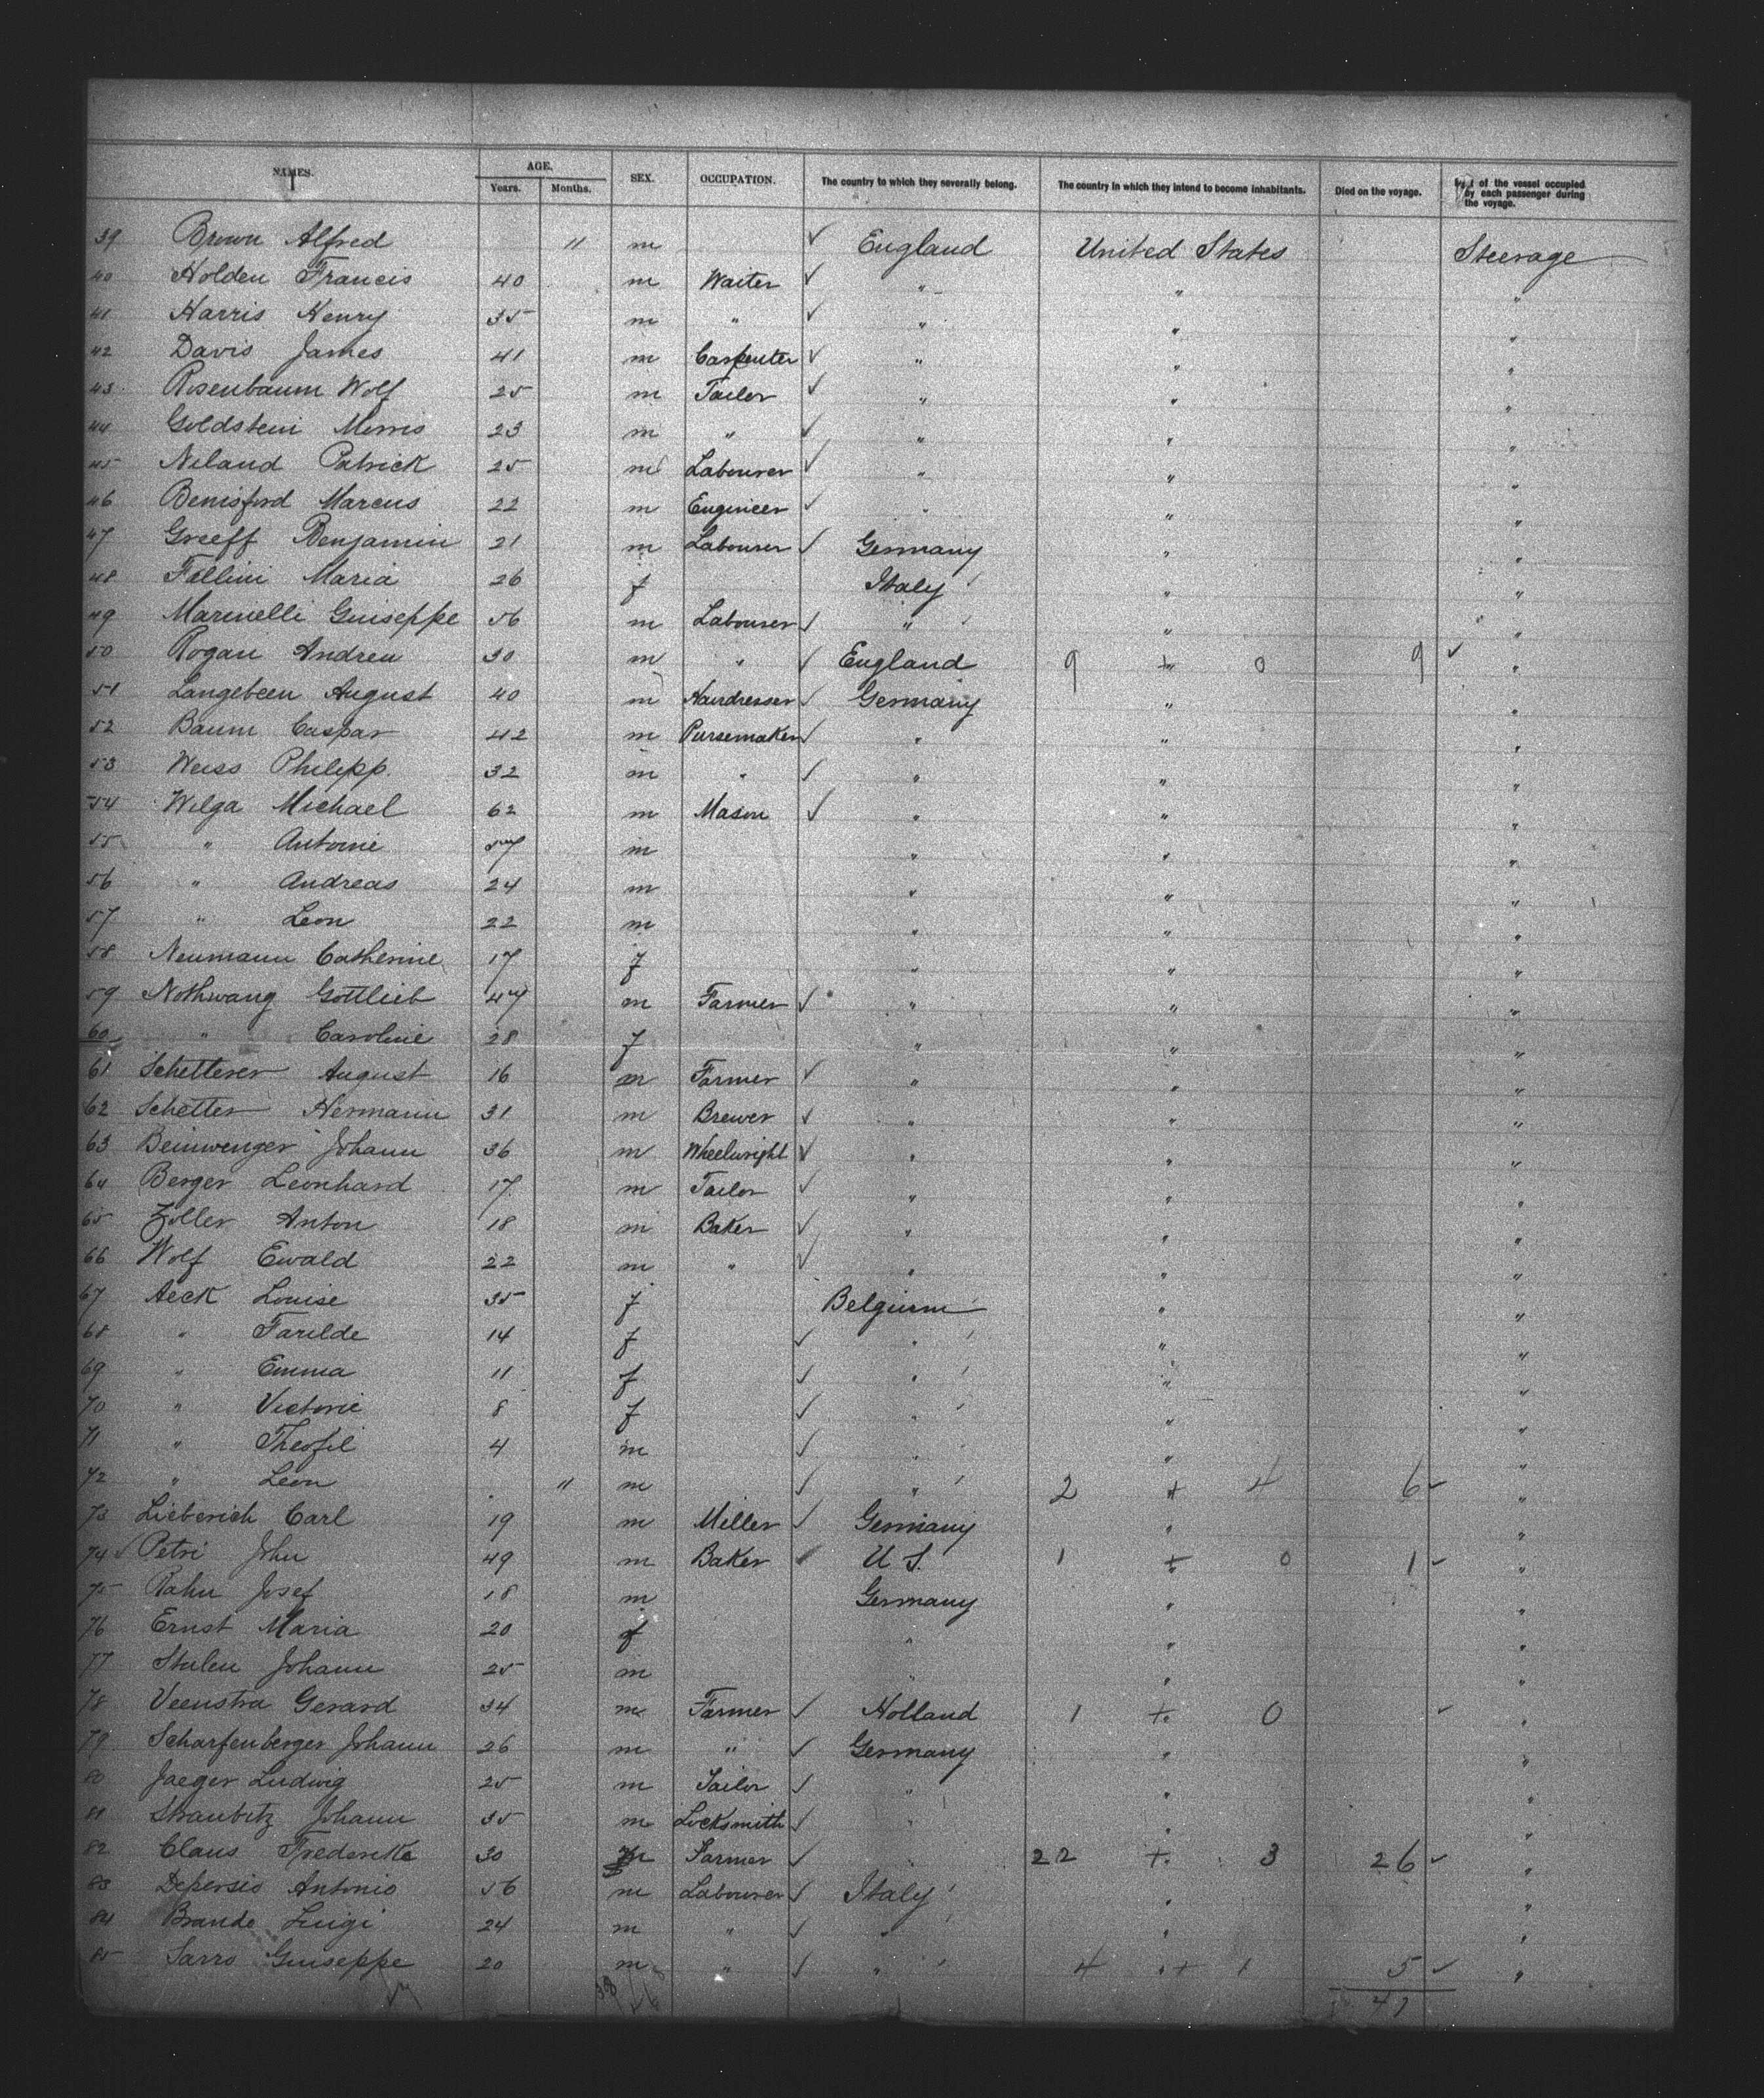 NAMES. AGE. SEX. OCCUPATION. The country to which they severally belong. The country in which they intend to become inhabitants. Died on the voyage. of the vessel occupied by each passenger during the voyage.
Years. Months.
39 Brown Alfred 11 m ✓ England United States Steerage
40 Holden Francis 40 m Waiter ✓ " " "
41 Harris Henry 35 m " ✓ " " "
42 Davis James 41 m Carpenter ✓ " " "
43 Rosenbaum Wolf 25 m Tailor ✓ " " "
44 Goldstein Morris 23 m " ✓ " " "
45 Niland Patrick 25 m Labourer ✓ " " "
46 Benisford Marcus 22 m Engineer ✓ " " "
47 Greeff Benjamin 21 m Labourer ✓ Germany " "
48 Fallini Maria 26 f Italy " "
49 Marinelli Guiseppe 56 m Labourer ✓ " " "
50 Rogan Andrew 30 m " ✓ England 9 + 0 9 ✓ "
51 Langebeen August 40 m Hairdresser ✓ Germany " "
52 Baum Caspar 42 m Pursemaker ✓ " " "
53 Weiss Philipp 32 m " ✓ " " "
54 Wilga Michael 62 m Mason ✓ " " "
55 " Antoine 57 m " " "
56 " Andreas 24 m " " "
57 " Leon 22 m " " "
58 Neumann Catherine 17 f " " "
59 Nothwang Gottlieb 47 m Farmer ✓ " " "
60 " Caroline 28 f " " "
61 Schetterer August 16 m Farmer ✓ " " "
62 Schetter Hermann 31 m Brewer ✓ " " "
63 Beinwenger Johann 36 m Wheelwright ✓ " " "
64 Berger Leonhard 17 m Tailor ✓ " " "
65 Zoller Anton 18 m Baker ✓ " " "
66 Wolf Ewald 22 m " ✓ " " "
67 Aeck Louise 35 f Belgium " "
68 " Farilde 14 f ✓ " " "
69 " Emma 11 f ✓ " " "
70 " Victorie 8 f ✓ " " "
71 " Theofil 4 m ✓ " " "
72 " Leon 11 m ✓ " 2 + 4 6 ✓ "
73 Lieberich Carl 19 m Miller ✓ Germany " "
74 ✓ Petri John 49 m Baker ✓ U S. 1 + 0 1 ✓ "
75 Rahn Josef 18 m Germany " "
76 Ernst Maria 20 f " " "
77 Stulen Johann 25 m " " "
78 Veenstra Gerard 34 m Farmer ✓ Holland 1 + 0 ✓ "
79 Scharfenberger Johann 26 m " ✓ Germany " "
80 Jaeger Ludwig 25 m Tailor ✓ " " "
81 Straubitz Johann 35 m Locksmith ✓ " " "
82 Claus Frederike 30 Farmer ✓ " 22 + 3 26 ✓ "
83 Depersio Antonio 56 m Labourer ✓ Italy " "
84 Brande Luigi 24 m " ✓ " " "
85 Sarro Guiseppe 20 m " ✓ " 4 + 1 5 ✓ "
38